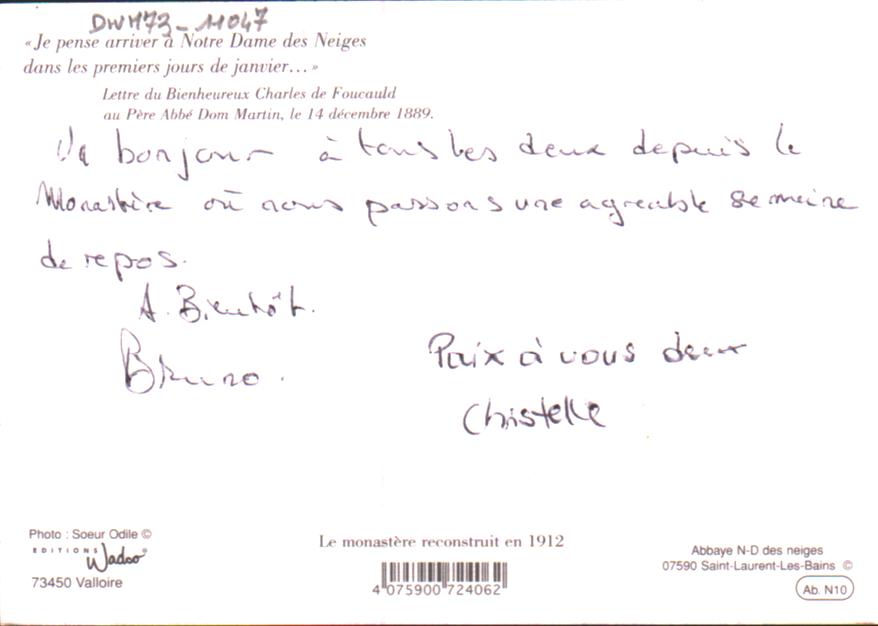 DWM73-11047
«Je pense arriver à Notre Dame des Neiges
dans les premiers jours de janvier...»
Lettre du Bienheureux Charles de Foucauld
au Père Abbé Dom Martin, le 14 décembre 1889.
bonjour à tous les deux depuis le
Monastère où nous passons une agréable semaine
de repos.
A. Bientôt.
Bruno.
Paix à vous deux
Christelle
Photo : Soeur Odile ©
EDITIONS Wadoo
73450 Valloire
Le monastère reconstruit en 1912
4 075900 724062
Abbaye N-D des neiges
07590 Saint-Laurent-Les-Bains ©
Ab. N10